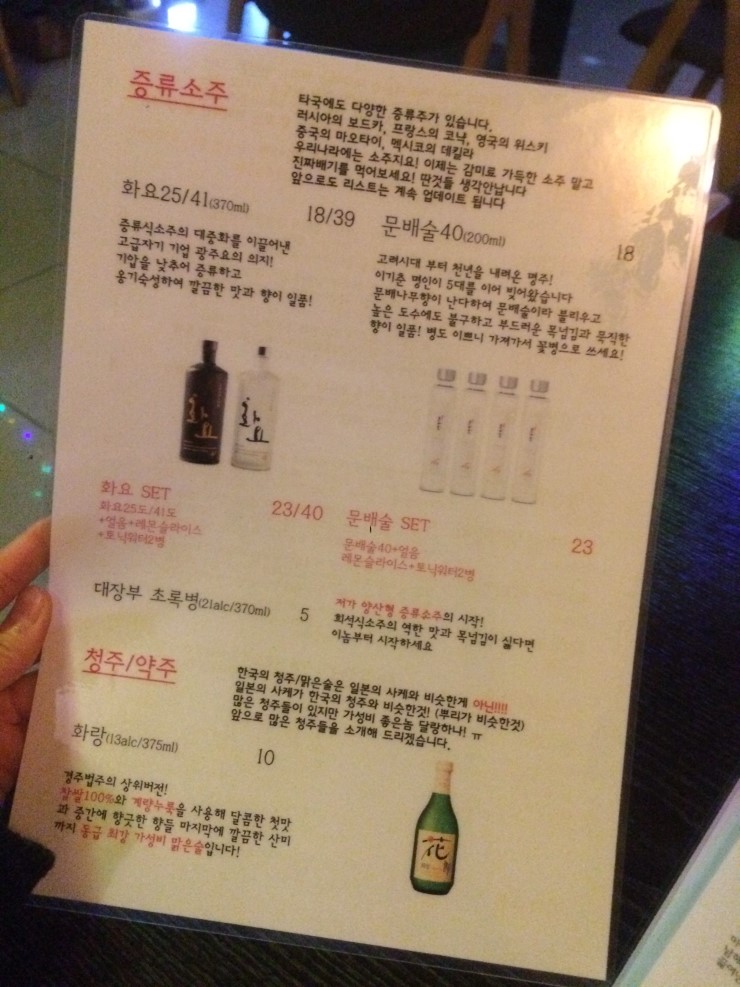 증류소주
타국에도 다양한 증류주가 있습니다.
러시아의 보드카, 프랑스의 코냑, 영국의 위스키
중국의 마오타이, 멕시코의 데킬라
우리나라에는 소주지요! 이제는 감미료 가득한 소주 말고
진짜배기를 먹어보세요! 딴것들 생각안납니다
앞으로도 리스트는 계속 업데이트 됩니다
화요25/41(370ml)
18/39
증류식소주의 대중화를 이끌어낸
고급자기 기업 광주요의 의지!
기압을 낮추어 증류하고
옹기숙성하여 깔끔한 맛과 향이 일품!
문배술40(200ml)
18
고려시대 부터 천년을 내려온 명주!
이기춘 명인이 5대를 이어 빚어왔습니다
문배나무향이 난다하여 문배술이라 불리우고
높은 도수에도 불구하고 부드러운 목넘김과 묵직한
향이 일품! 병도 이쁘니 가져가서 꽃병으로 쓰세요!
화요
화요
화요 SET
23/40
화요25도/41도
+얼음+레몬슬라이스
+토닉워터2병
문배술 SET
23
문배술40+얼음
레몬슬라이스+토닉워터2병
대장부 초록병(21alc/370ml)
5
저가 양산형 증류소주의 시작!
희석식소주의 역한 맛과 목넘김이 싫다면
이놈부터 시작하세요
청주/약주
한국의 청주/맑은술은 일본의 사케와 비슷한게 아닌!!!!
일본의 사케가 한국의 청주와 비슷한것! (뿌리가 비슷한것)
많은 청주들이 있지만 가성비 좋은놈 달랑하나! ㅠ
앞으로 많은 청주들을 소개해 드리겠습니다.
화랑(13alc/375ml)
10
경주법주의 상위버전!
찹쌀100%와 계량누룩을 사용해 달콤한 첫맛
과 중간에 향긋한 향들 마지막에 깔끔한 산미
까지 동급 최강 가성비 맑은술입니다!
花